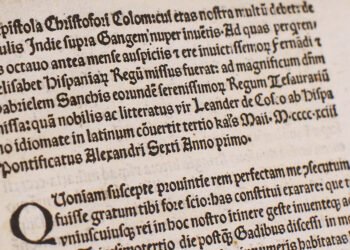 pistola Christofori Colom: cui etas nostra multū debet: de
sulis Indie supra Gangem nuper inuētis. Ad quas perqren
s octauo antea mense auspiciis τ ere inuictissemoꝝ Fernādi τ
elisabet Hispaniaꝝ Regū missus fuerat: ad magnificum dñm
abrielem Sanchis eorundē serenissimoꝝ Regum Tesaurariū
issa: quā nobilis ac litteratus vir Leander de Cosco ab Hispa
no idiomate in latinum cōuertit tertio kal's Maii. M.cccc.xciii
Pontificatus Alexandri Sexti Anno primo.
Quoniam suscepte prouintie rem perfectam me ꝯsecutum
fuisse gratum tibi fore scio: has constitui exarare: que t
vniuscuiusqꝫ rei in hoc nostro itinere geste inuenteqꝫ ad
tertio die postqꝫ Gadibus discessi in m